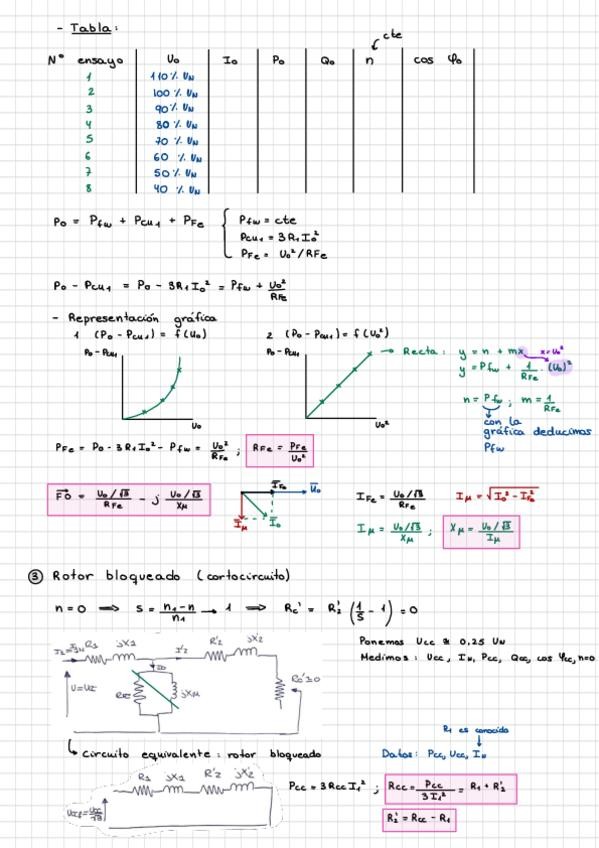 - Tabla:
cte
Nº ensayo U₀ I₀ P₀ Q₀ n cos φ₀
1 110 % U_N
2 100 % U_N
3 90 % U_N
4 80 % U_N
5 70 % U_N
6 60 % U_N
7 50 % U_N
8 40 % U_N
P₀ = P_fw + P_cu₁ + P_Fe { P_fw = cte
P_cu₁ = 3R₁I₀²
P_Fe = U₀²/R_Fe
P₀ - P_cu₁ = P₀ - 3R₁I₀² = P_fw + U₀²/R_Fe
- Representación gráfica
1 (P₀ - P_cu₁) = f(U₀) 2 (P₀ - P_cu₁) = f(U₀²)
P₀ - P_cu₁ U₀
P₀ - P_cu₁ U₀²
Recta: y = n + mx x = U₀²
y = P_fw + 1/R_Fe · (U₀)²
n = P_fw ; m = 1/R_Fe
con la
gráfica deducimos
P_fw
P_Fe = P₀ - 3R₁I₀² - P_fw = U₀²/R_Fe ; R_Fe = P_Fe/U₀²
I₀ = (U₀/√3)/R_Fe - j (U₀/√3)/X_μ
I_Fe U₀
I_μ I₀
I_Fe = (U₀/√3)/R_Fe I_μ = √(I₀² - I_Fe²)
I_μ = (U₀/√3)/X_μ ; X_μ = (U₀/√3)/I_μ
③ Rotor bloqueado (cortocircuito)
n = 0 ⟹ s = (n₁ - n)/n₁ → 1 ⟹ R_c' = R₂' (1/s - 1) = 0
Ponemos U_cc ≈ 0,25 U_N
Medimos: U_cc, I_N, P_cc, Q_cc, cos φ_cc, n=0
R₁ jX₁ I'₂ R'₂ jX'₂
I₀
R_Fe jX_μ
R_c'=0
R₁ es conocido
circuito equivalente: rotor bloqueado
Datos: P_cc, U_cc, I_N
R₁ jX₁ R'₂ jX'₂
P_cc = 3R_cc I₁² ; R_cc = P_cc/3I₁² = R₁ + R'₂
R'₂ = R_cc - R₁